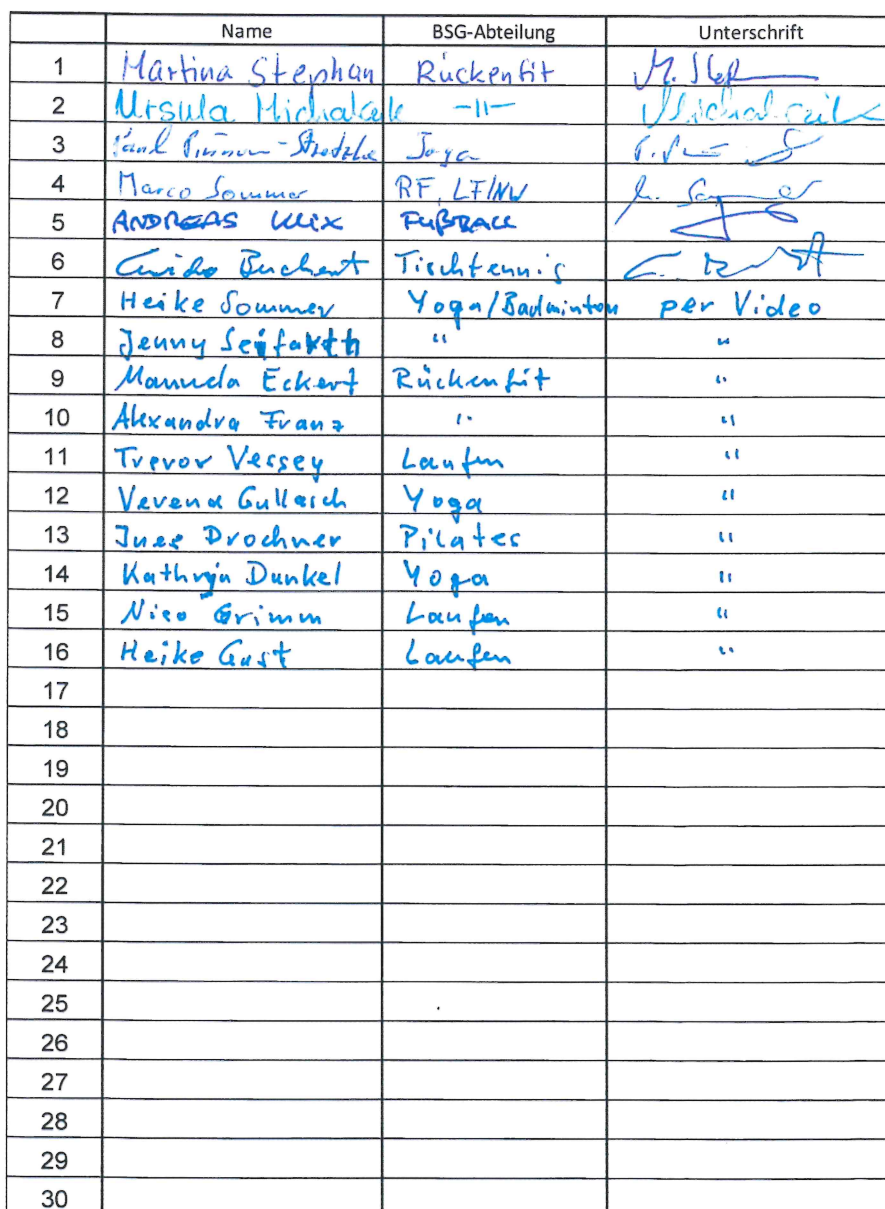 Name BSG-Abteilung Unterschrift
1 Martina Stephan Rückenfit M. Steph
2 Ursula Michalcak -11-
3 Yoga
4 Marco Sommer RF, LF/NW
5 ANDREAS KLIX FUßBALL
6 Guido Buchert Tischtennis
7 Heike Sommer Yoga/Badminton per Video
8 Jenny Seifarth " "
9 Manuela Eckert Rückenfit "
10 Alexandra Franz " "
11 Trevor Vessey Laufen "
12 Verena Gullasch Yoga "
13 Ines Drochner Pilates "
14 Kathryn Dunkel Yoga "
15 Nico Grimm Laufen "
16 Heike Gust Laufen "
17
18
19
20
21
22
23
24
25
26
27
28
29
30